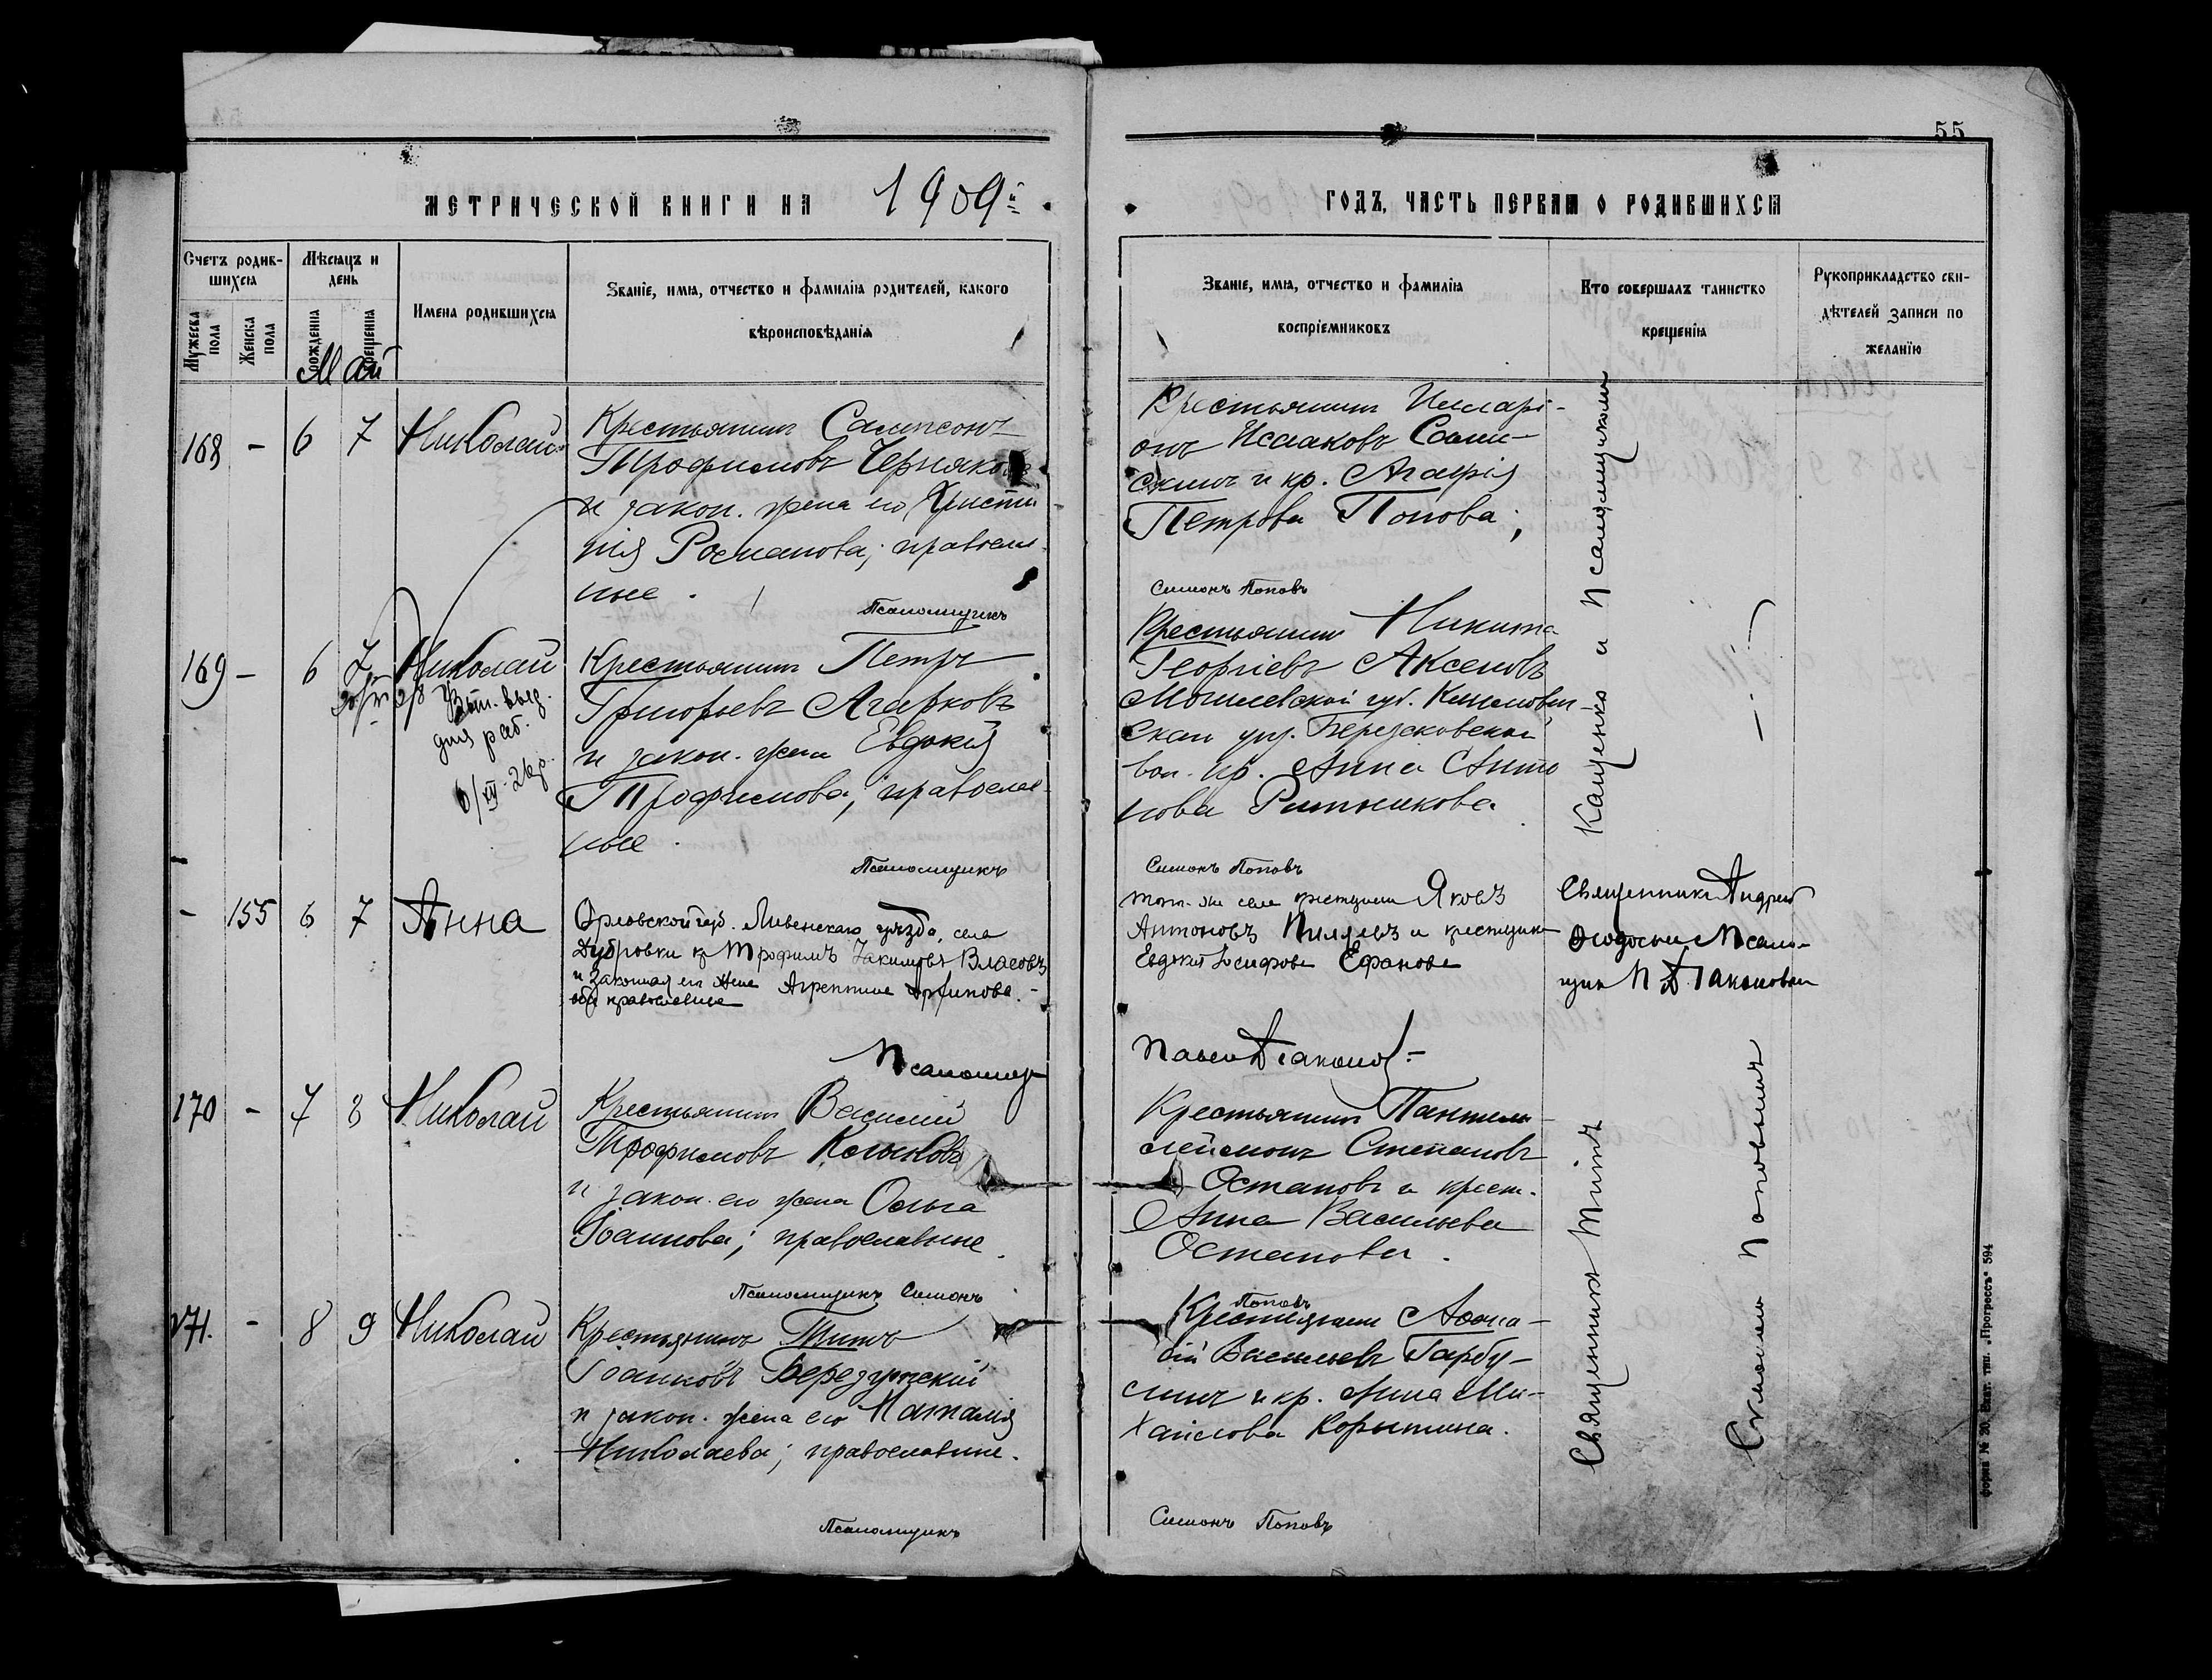 55
МЕТРИЧЕСКОЙ КНИГИ НА 1909й
ГОДЪ, ЧАСТЬ ПЕРВАЯ О РОДИВШИХСЯ
Счетъ родив-
шихся
Мужеска пола
Женска пола
Мѣсяцъ и
день
рожденія
крещенія
Май
Имена родившихся
Званіе, имя, отчество и фамилія родителей, какого
вѣроисповѣданія
Званіе, имя, отчество и фамилія
воспріемниковъ
Кто совершалъ таинство
крещенія
Рукоприкладство сви-
дѣтелей записи по
желанію
168 - 6 7 Николай
Крестьянинъ Сампсонъ
Трофимовъ Черняковъ
и закон. жена его Христи
нія Романова; православ
ные.
Псаломщикъ
Крестьянинъ Иларі-
онъ Исааковъ
и кр. Агафія
Петрова Попова;
Симонъ Поповъ
169 - 6 7 Николай
Выд.
для раб.
6/XII-26г.
Крестьянинъ Петръ
Григорьевъ Агарковъ
и закон. жена Евдокія
Трофимова; православ-
ные.
Псаломщикъ
Крестьянинъ Никита
Георгіевъ Аксеновъ
Могилевской губ. Климович-
скаго уѣз.
вол. кр. Анна Анто
нова
Симонъ Поповъ
Кащенко и Псаломщикомъ
- 155 6 7 Анна
Орловской губ. Ливенскаго уѣзда, села
Дубровки кр Трофимъ Іакимовъ Власовъ
и законная его жена Агриппина
оба православные
Псаломщ
того-же села крестьянин Яковъ
Антоновъ и крестьянка
Евдокія Іосифова Ефанова
Павел Діаконов
Священникъ Андрей
Псалом-
щик П Діаконовъ
170 - 7 8 Николай
Крестьянинъ Василій
Трофимовъ
и закон. его жена Ольга
Іоаннова; православные.
Псаломщикъ Симонъ
Поповъ
Крестьянинъ Пантеле-
леймонъ Степановъ
Остаповъ и крест.
Анна Васильева
Остапова.
171. - 8 9 Николай
Крестьянинъ Титъ
и закон. жена его Наталія
Николаева; православные.
Псаломщикъ
Крестьянин Афана-
сій Васильевъ Гарбу-
и кр. Анна Ми-
хайлова Корытина.
Симонъ Поповъ
Священникъ Титъ
Симономъ Поповымъ
форма № 30. Екат. тип. „Прогрессъ" 594